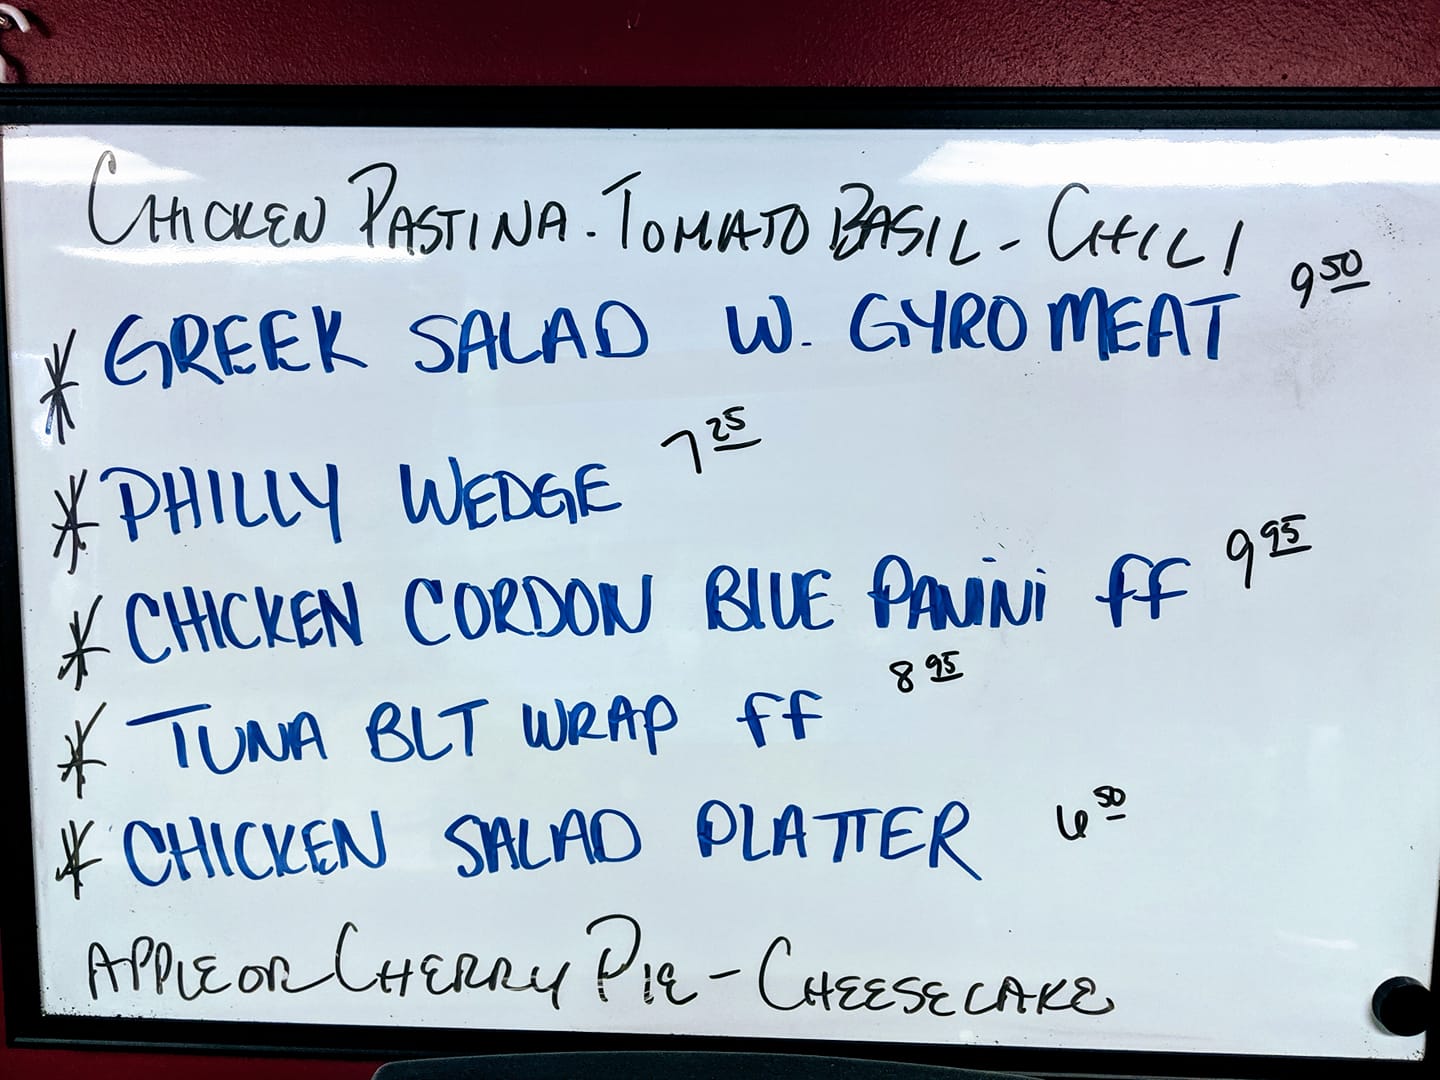 CHICKEN PASTINA - TOMATO BASIL - CHILI
* GREEK SALAD W. GYRO MEAT 9 50
* PHILLY WEDGE 7 25
* CHICKEN CORDON BLUE PANINI FF 9 95
* TUNA BLT WRAP FF 8 95
* CHICKEN SALAD PLATTER 6 50
APPLE OR CHERRY PIE - CHEESECAKE